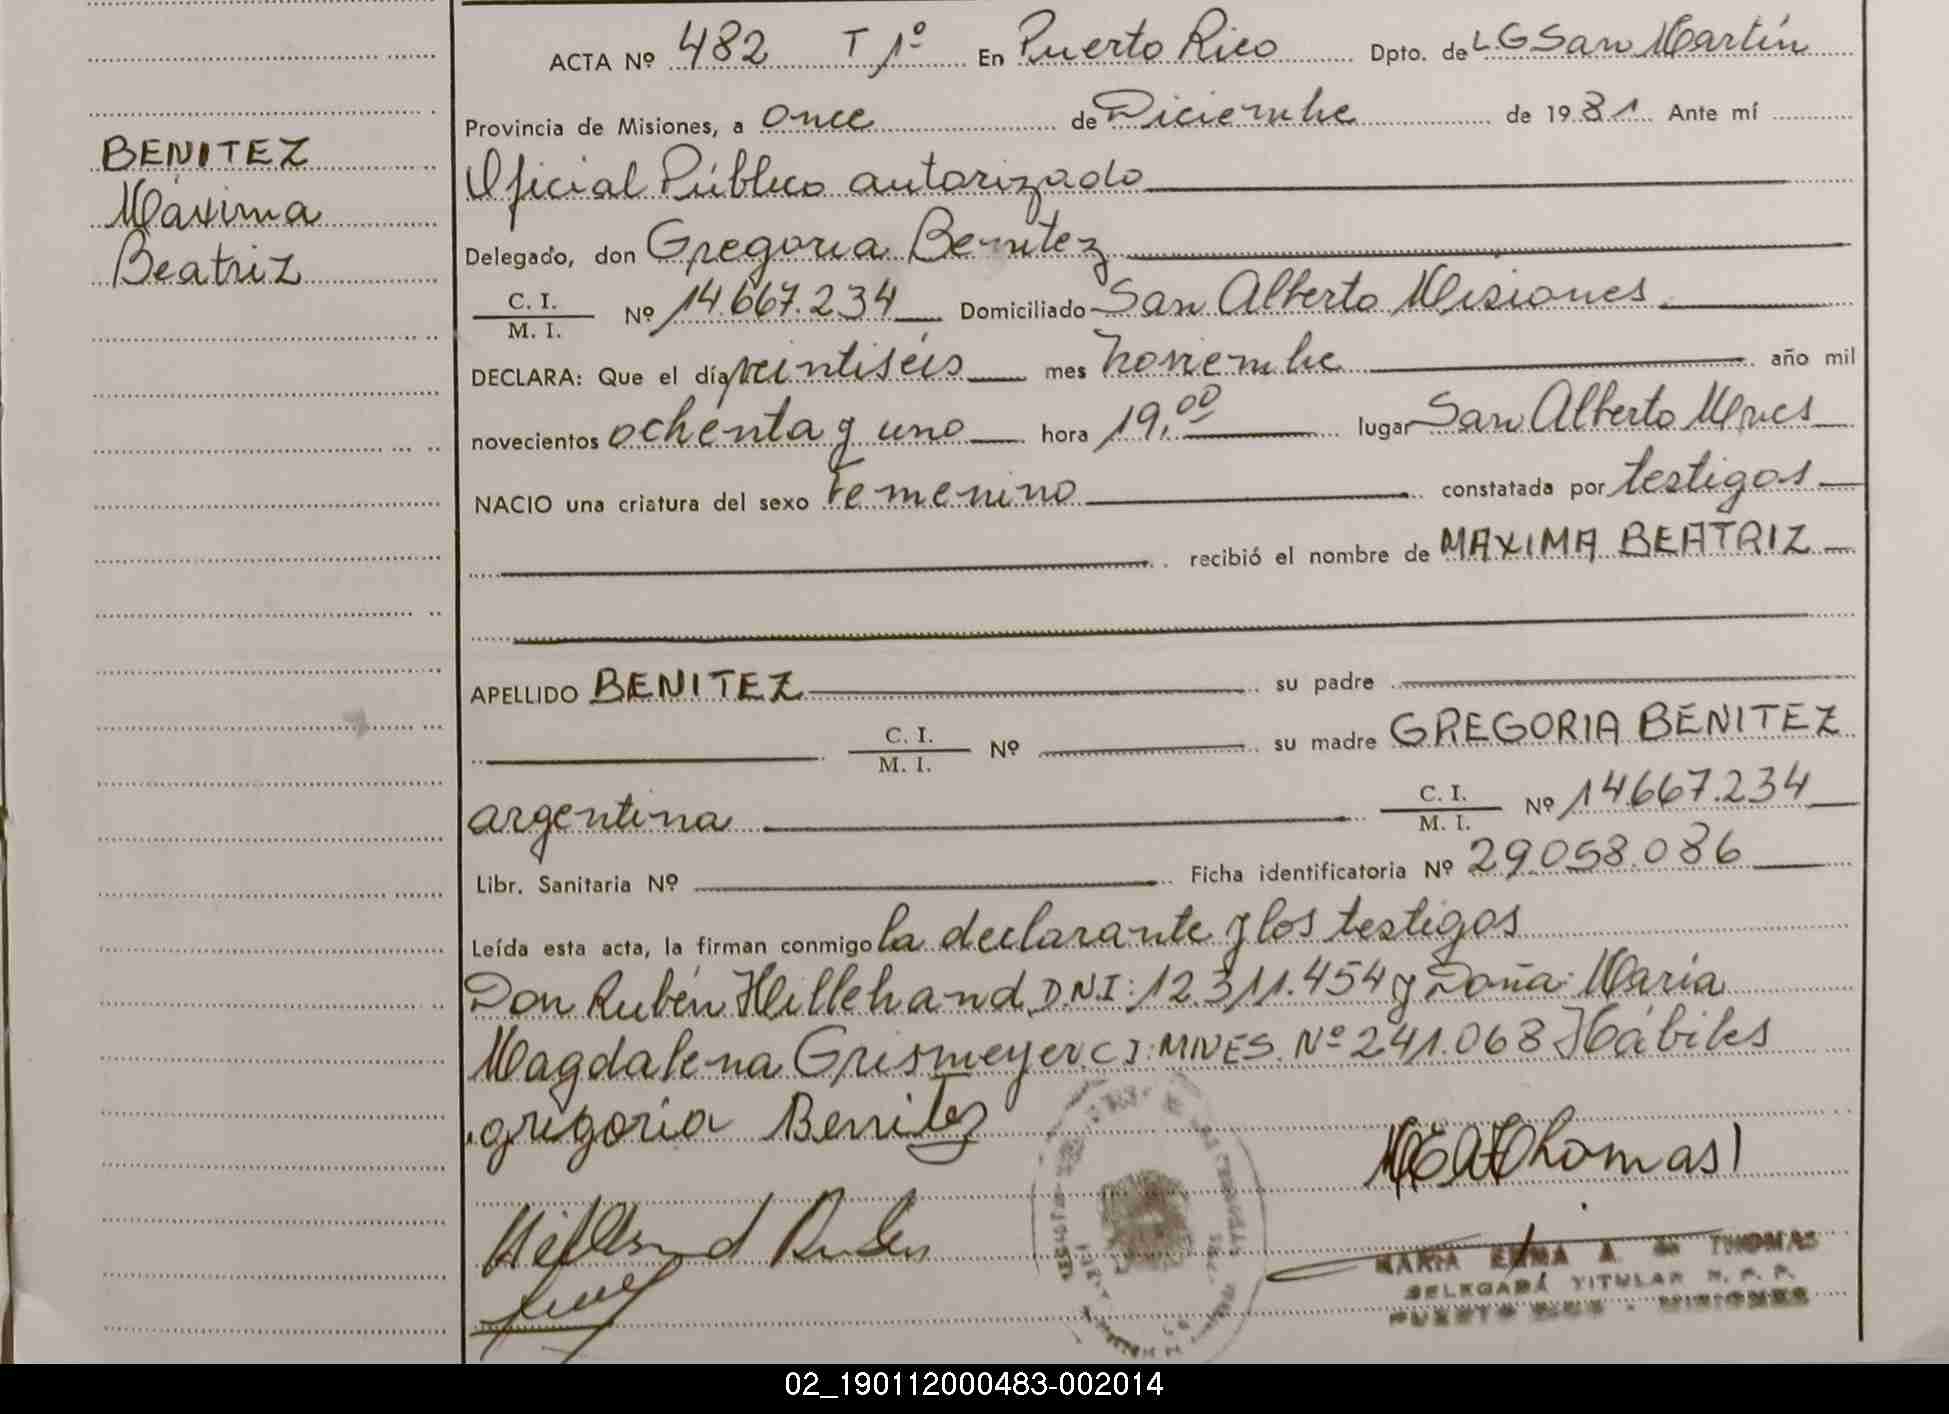 ACTA Nº 482 T 1º En Puerto Rico Dpto. de L.G San Martín
Provincia de Misiones, a once de Diciembre de 1981 Ante mí
BENITEZ
Máxima
Beatriz
Oficial Público autorizado
Delegado, don Gregoria Benitez
C. I.
M. I. Nº 14.667.234 Domiciliado San Alberto Misiones
DECLARA: Que el día veintiséis mes noviembre año mil
novecientos ochenta y uno hora 19,00 lugar San Alberto Mnes
NACIO una criatura del sexo Femenino constatada por testigos
recibió el nombre de MAXIMA BEATRIZ
APELLIDO BENITEZ su padre
C. I.
M. I. Nº su madre GREGORIA BENITEZ
argentina C. I.
M. I. Nº 14667.234
Libr. Sanitaria Nº Ficha identificatoria Nº 29.058.086
Leída esta acta, la firman conmigo la declarante y los testigos
Don Rubén Hillebrand D.N.I: 12.311.454 y Doña: María
Magdalena Grismeyer C I: MNES. Nº 241.068 Hábiles
gregoria Benitez
Hillebrand Ruben
MEAThomas
MARIA EMMA A. de THOMAS
DELEGADA TITULAR R. P. P.
PUERTO RICO - MISIONES
02_190112000483-002014